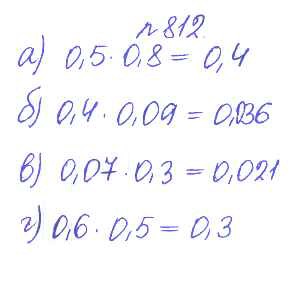 n 812.
а) 0,5 · 0,8 = 0,4
б) 0,4 · 0,09 = 0,036
в) 0,07 · 0,3 = 0,021
г) 0,6 · 0,5 = 0,3